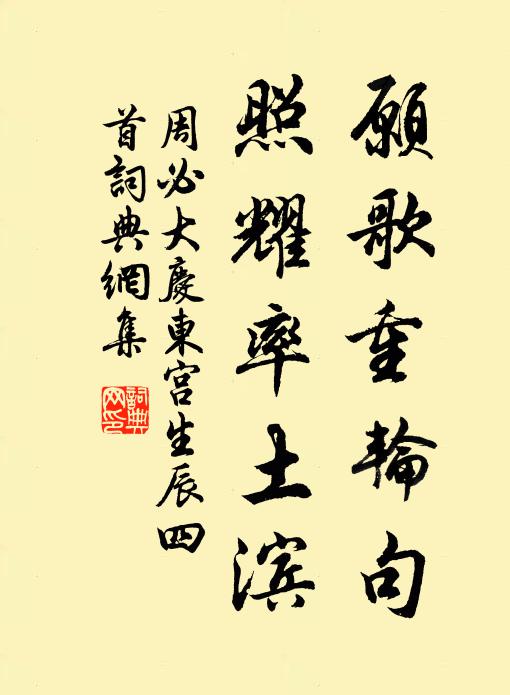 願歌重輪句
照耀率土滨
周必大慶東宮生辰四
首詞典網集
詞典
网印